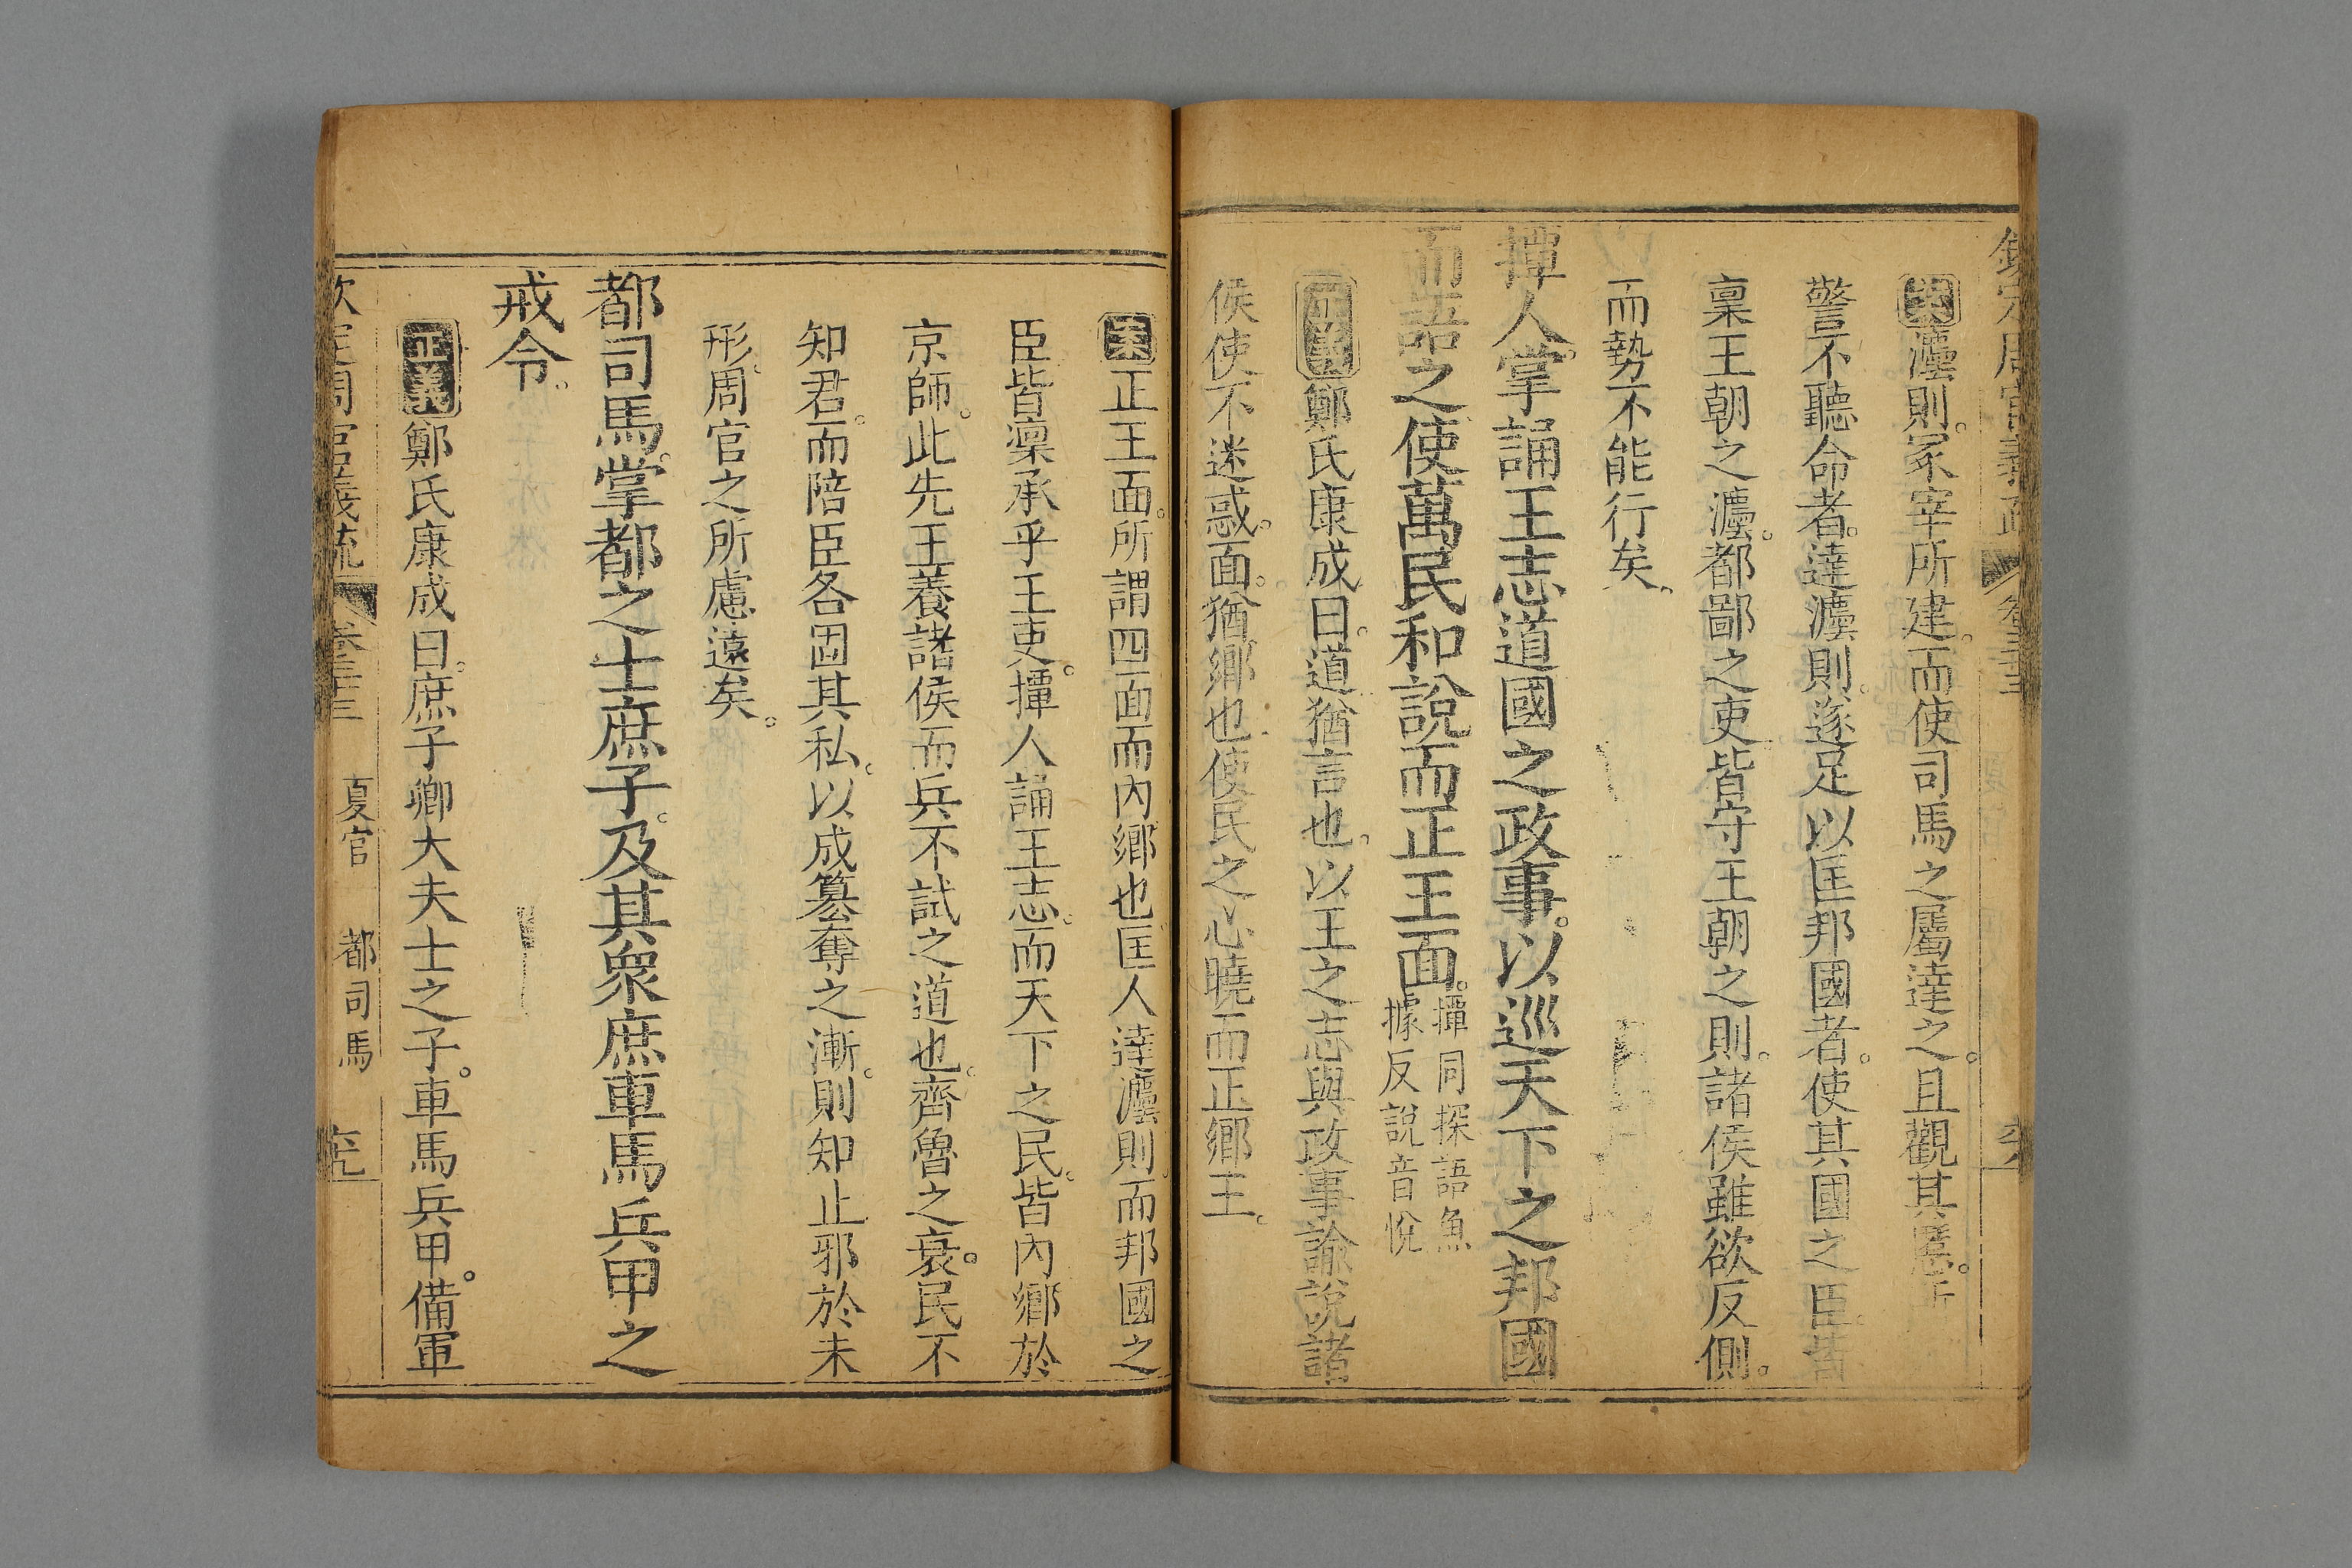 欽定周官義疏 卷三十三
案灋則冢宰所建而使司馬之屬達之且觀其慝
警不聽命者達灋則遂足以匡邦國者使其國之臣皆
稟王朝之灋都鄙之吏皆守王朝之則諸侯雖欲反側
而勢不能行矣
撢人掌誦王志道國之政事以巡天下之邦國
而語之使萬民和說而正王面撢同探語魚
據反說音悅
正義鄭氏康成曰道猶言也以王之志與政事諭說諸
侯使不迷惑面猶鄉也使民之心曉而正鄉王
案正王面所謂四面而內鄉也匡人達灋則而邦國之
臣皆稟承乎王吏撢人誦王志而天下之民皆內鄉於
京師此先王養諸侯而兵不試之道也齊魯之衰民不
知君而陪臣各因其私以成篡奪之漸則知止邪於未
形周官之所慮遠矣
都司馬掌都之士庶子及其衆庶車馬兵甲之
戒令
正義鄭氏康成曰庶子卿大夫士之子車馬兵甲備軍
欽定周官義疏 卷三十三 夏官 都司馬